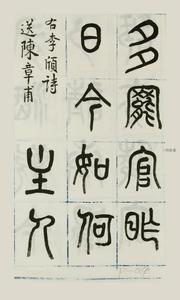 多罷官昨
日今如何
右李頎詩
送陳章甫